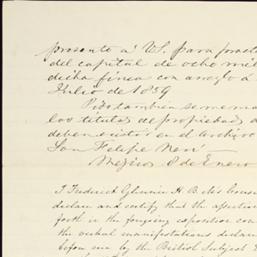 presento á VS. para pract
del capital de ocho mil
dicha finca con arreglo á
Julio de 1859
Pido tambien se me man
los titulos de propiedad
deben existir en el Archivo
San Felipe Neri
Mejico 8 de Enero
I Frederick Glennie H. B. M's Consul
declare and certify that the assertion
forth in the foregoing exposition con
the verbal manifestations declar
before me by the British Subject